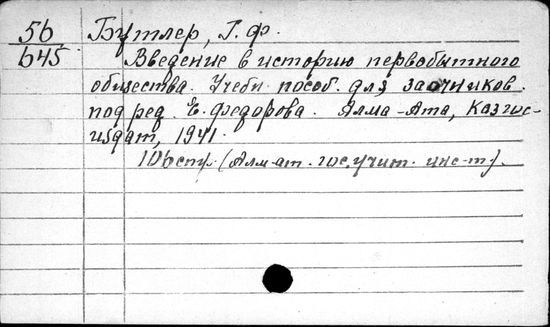 56 Бутлер, Г. Ф.
Б45 Введение в историю первобытного
общества. Учебн. пособ. для заочников.
под ред. Е. Федорова. Алма-Ата, Казгос-
издат, 1941.
106 стр. (Алм-ат. гос. учит. инс-т).